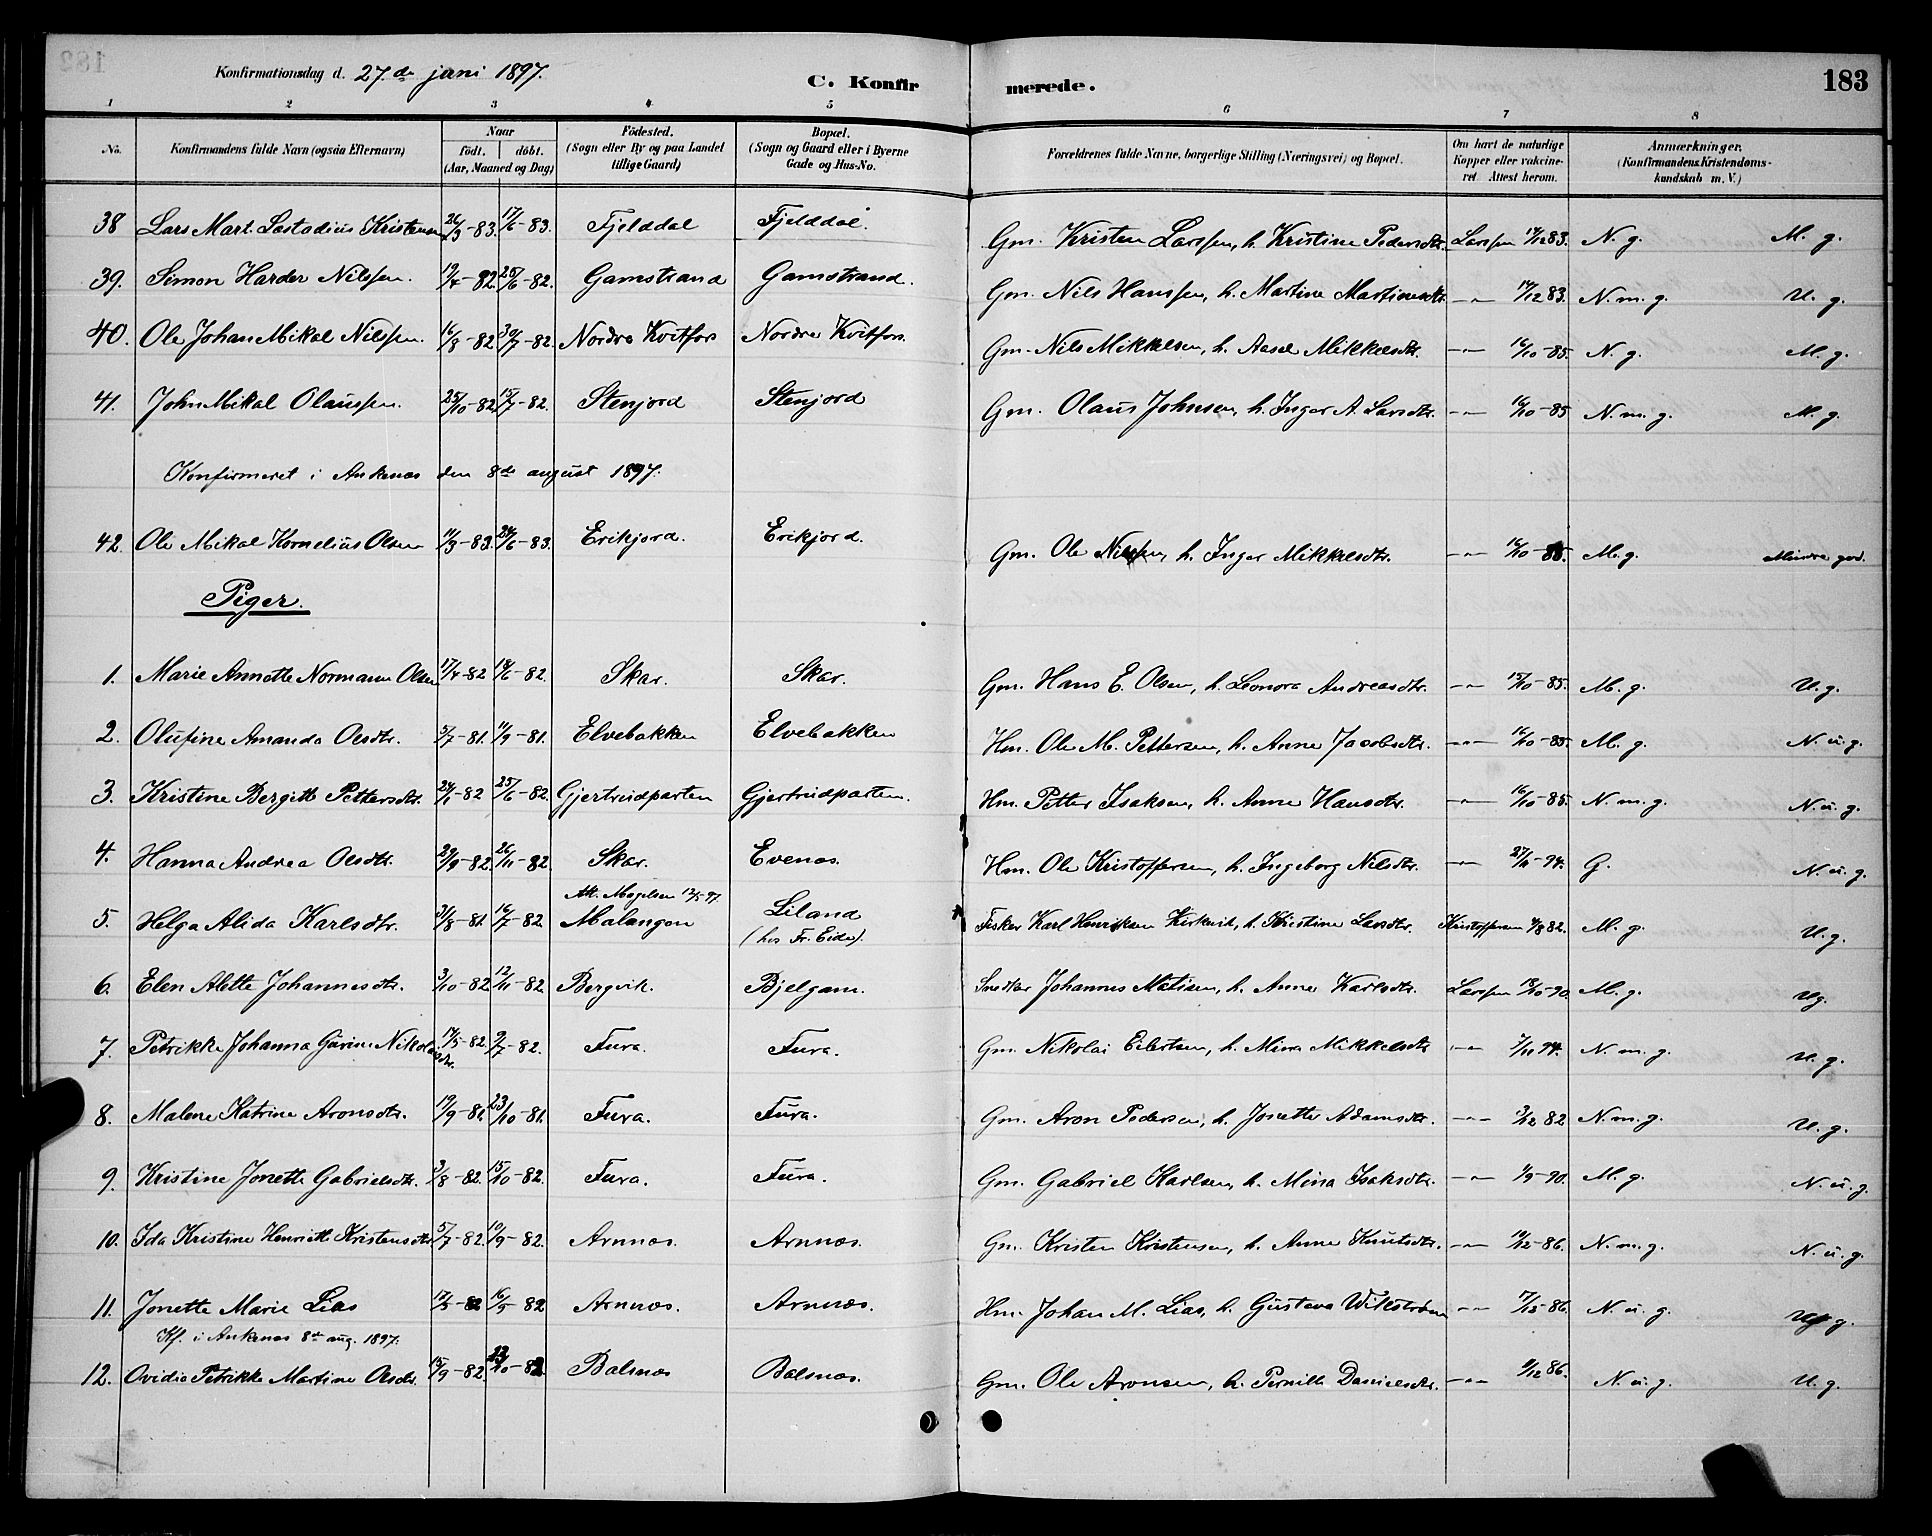 Konfirmationsdag d. 27.de juni 1897. C. Konfirmerede. 183
1 2 3 4 5 6 7 8
No. Konfirmandens fulde Navn (ogsaa Efternavn) Naar født. døbt. (Aar, Maaned og Dag) Fødested. (Sogn eller By og paa Landet tillige Gaard) Bopæl. (Sogn og Gaard eller i Byerne Gade og Hus-No. Forældrenes fulde Navne, borgerlige Stilling (Næringsvei) og Bopæl. Om havt de naturlige Kopper eller vakcineret. Attest herom. Anmærkninger. (Konfirmandens Kristendomskundskab m. V.)
38 Lars Mart. Læstadius Kristensen 26/3-83. 17/6-83. Fjelddal Fjelddal. Gm. Kristen Larssen, h. Kristine Pedersdtr. Larssen 17/12 83. N. g. M. g.
39. Simon Harder Nilssen. 19/4-82. 25/6-82. Gamstrand Gamstrand. Gm. Nils Hanssen, h. Martine Martinusdtr. -"- 17/12 83. N. m. g. U. g.
40. Ole Johan Mikal Nilssen. 16/8-82. 30/7-82. Nordre Kvitfors Nordre Kvitfors. Gm. Nils Mikkelsen, h. Aasel Mikkelsdtr. -"- 16/10-85. N. g. M. g.
41. John Mikal Olaussen. 25/10-82. 15/7-82. Stenjord Stenjord Gm. Olaus Johnsen, h. Inger A. Larsdtr. -"- 16/10-85 N. m. g. M. g.
Konfirmeret i Ankenæs den 8de august 1897.
42. Ole Mikal Kornelius Olsen 11/3-83. 24/6-83. Erikjord. Erikjord. Gm. Ole Nilssen, h. Inger Mikkelsdtr. -"- 16/10-85. M. g. Mindre god.
Piger.
1. Marie Annette Normann Olsen 17/4-82 18/6-82. Skar. Skar. Gm. Hans E. Olsen, h. Leonora Andreasdtr. -"- 15/10-85. M. g. U. g.
2. Olufine Amanda Olsdtr. 5/7-81. 11/9-81. Elvebakken Elvebakken Hm. Ole M. Pettersen, h. Anne Jacobsdtr. -"- 16/10-85 M. g. N. u. g.
3. Kristine Bergitte Pettersdtr. 24/1-82 25/6-82. Gjertrudparten Gjertrudparten. Hm. Petter Isaksen, h. Anne Hansdtr. -"- 16/10-85. N. m. g. N. u. g.
4. Hanna Andrea Olsdtr. 29/9-82. 26/11-82. Skar. Evenæs. Hm. Ole Kristoffersen, h. Ingeborg Nilsdtr. -"- 27/11-94. G. N. u. g.
5. Helga Alida Karlsdtr. 31/8-81. 16/7-82. Att. Mogelsen 12/5 97. Malangen Liland (hos Fr. Eide). Fisker Karl Henriksen Kirkevik, h. Kristine Larsdtr. Kristoffersen 4/8 82. M. g. U. g.
6. Elen Alette Johannesdtr. 3/10-82. 12/11-82. Bergvik. Bjelgam. Snedker Johannes Matisen, h. Anne Karlsdtr. Larssen 18/10-90. M. g. Ug.
7. Petrikke Johanna Gurine Nikolaisdtr. 17/5-82. 9/7-82. Fura. Fura. Gm. Nikolai Eilertsen, h. Mina Mikkelsdtr -"- 7/11 94. N. m. g. U. g.
8. Malene Katrine Aronsdtr. 19/9-82. 23/10-81. Fura. Fura. Gm. Aron Pedersen, h. Jonette Adamsdtr. -"- 3/12 82 N. m. g. U. g.
9. Kristine Jonette Gabrielsdtr. 3/8-82. 15/10-82. Fura. Fura. Gm. Gabriel Karlsen, h. Mina Isaksdtr. -"- 1/9-90. M. g. N. u. g.
10. Ida Kristine Henriette Kristensdtr. 5/7-82. 10/9-82. Arnnæs. Arnnæs. Gm. Kristen Kristensen, h. Anne Knutsdtr. -"- 10/12-86. N. m. g. N. u. g.
11. Jonette Marie Lias 17/3-82 16/5-82 Arnnæs. Arnnæs. Hm. Johan M. Lias, h. Gustava Wikstrøm -"- 7/12-86. N. u. g. U. g.
Kf. i Ankenæs 8de aug. 1897.
12. Ovidia Petrikke Martine Olsdtr. 15/9-82. 23/10-82. Balsnæs Balsnæs. Gm. Ole Aronsen, h. Pernille Danielsdtr. -"- 9/12 86. N. u. g. U. g.